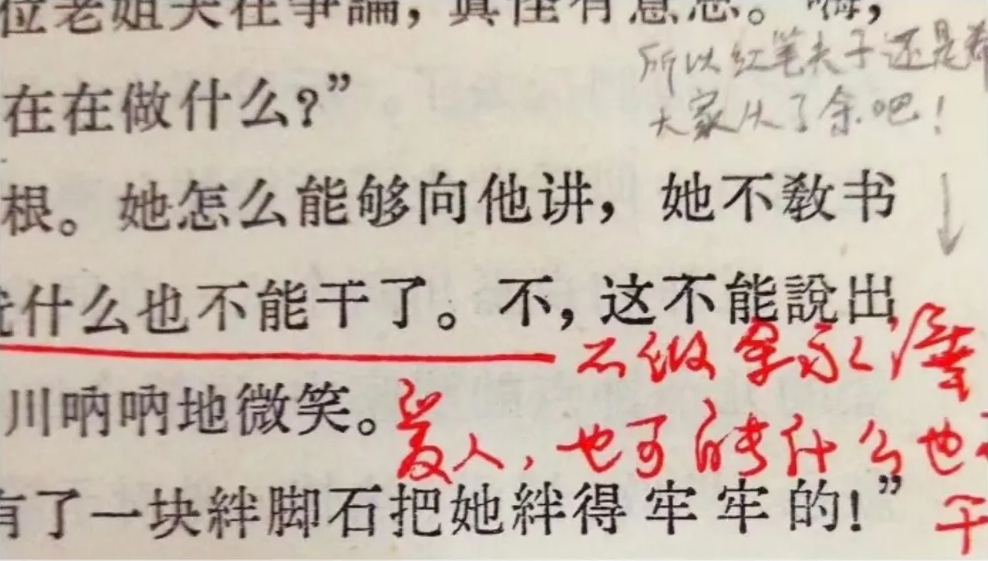 位老姐夫在爭論，真怪有意思。嗨，
所以红笔夫子还是希
大家从了余吧！
在在做什么？”
根。她怎么能够向他讲，她不教书
什么也不能干了。不，这不能說出
不做余永泽
爱人，也可能什么也不
干
川吶吶地微笑。
有了一块絆脚石把她絆得牢牢的！”